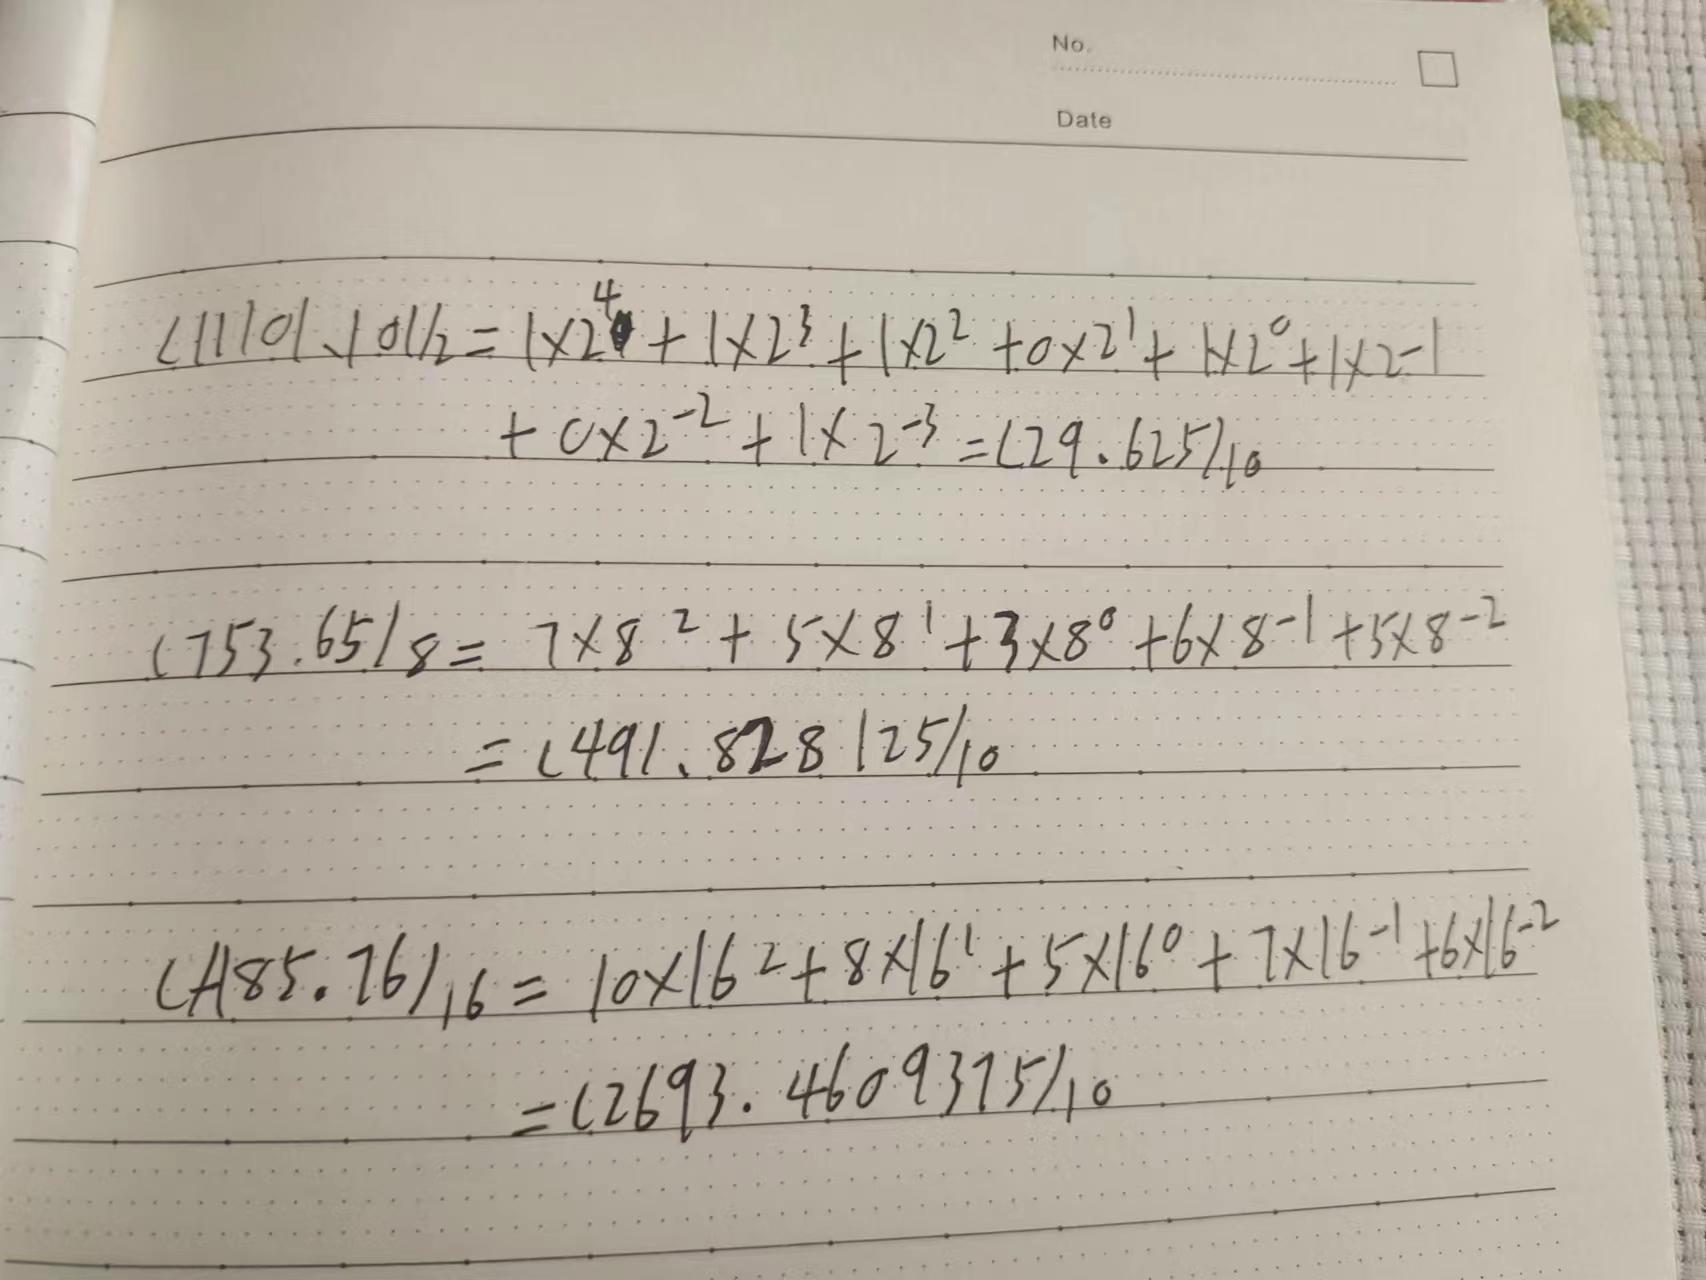 No.
Date
(11101.101)₂ = 1×2⁴ + 1×2³ + 1×2² + 0×2¹ + 1×2⁰ + 1×2-1
+ 0×2⁻² + 1×2⁻³ = (29.625)₁₀
(753.65)₈ = 7×8² + 5×8¹ + 3×8⁰ + 6×8⁻¹ + 5×8⁻²
= (491.828125)₁₀
(A85.76)₁₆ = 10×16² + 8×16¹ + 5×16⁰ + 7×16⁻¹ + 6×16⁻²
= (2693.4609375)₁₀